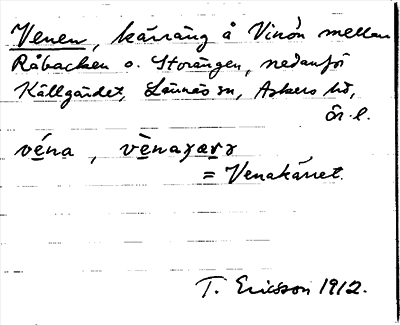 Venen, kärräng å Vinön mellan
Råbacken o. Storängen, nedanför
Källgärdet, Lännäs sn, Askers hd,
Ör. l.
véna,
= Venakärret.
T. Ericsson 1912.